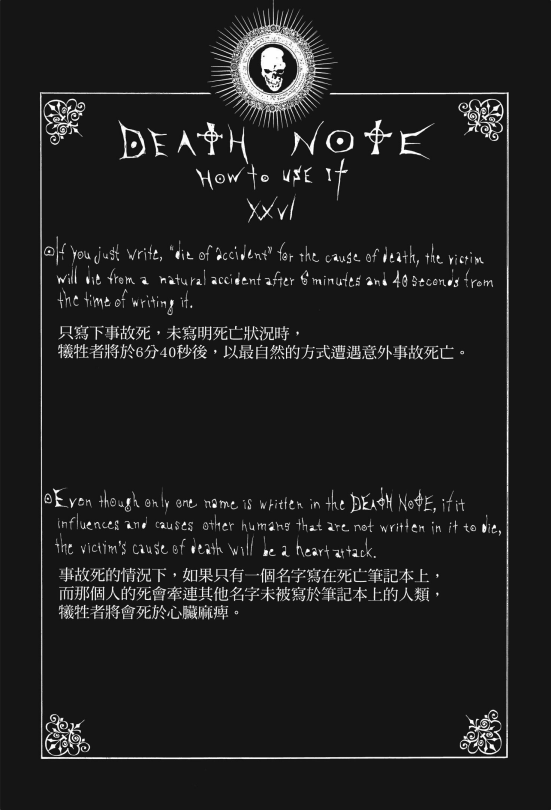 DEATH NOTE
HOW to USE IT
XXVI
If you just write, "die of accident" for the cause of death, the victim
will die from a natural accident after 6 minutes and 40 seconds from
the time of writing it.
只寫下事故死，未寫明死亡狀況時，
犧牲者將於6分40秒後，以最自然的方式遭遇意外事故死亡。
Even though only one name is written in the DEATH NOTE, if it
influences and causes other humans that are not written in it to die,
the victim's cause of death will be a heart attack.
事故死的情況下，如果只有一個名字寫在死亡筆記本上，
而那個人的死會牽連其他名字未被寫於筆記本上的人類，
犧牲者將會死於心臟麻痺。